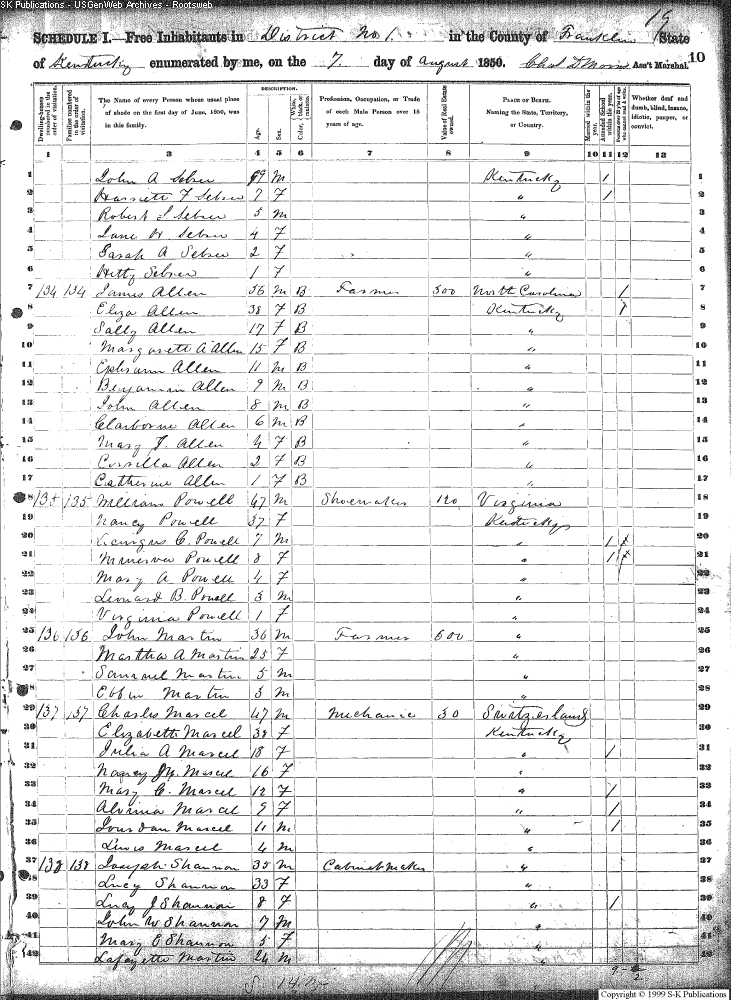 SK Publications - USGenWeb Archives - Rootsweb
19
SCHEDULE I.—Free Inhabitants in District No 1. in the County of Franklin State
of Kentucky enumerated by me, on the 7. day of August 1850. Ass't Marshal. 10
Dwelling-houses numbered in the order of visitation.
Families numbered in the order of visitation.
The Name of every Person whose usual place of abode on the first day of June, 1850, was in this family.
DESCRIPTION.
Age.
Sex.
Color, White, black, or mulatto.
Profession, Occupation, or Trade of each Male Person over 15 years of age.
Value of Real Estate owned.
PLACE OF BIRTH. Naming the State, Territory, or Country.
Married within the year.
Attended School within the year.
Persons over 20 y'rs of age who cannot read & write.
Whether deaf and dumb, blind, insane, idiotic, pauper, or convict.
1 2 3 4 5 6 7 8 9 10 11 12 13
1 John A Sebree 9 M Kentucky / 1
2 Harriett F Sebree 7 F " / 2
3 Robert S Sebree 5 M " 3
4 Jane H Sebree 4 F " 4
5 Sarah A Sebree 2 F " 5
6 Hetty Sebree 1 F " 6
7 134 134 James Allen 56 M B Farmer 300 North Carolina / 7
8 Eliza Allen 38 F B Kentucky 1 8
9 Sally Allen 17 F B " 9
10 Margarett A Allen 15 F B " 10
11 Ephraim Allen 11 M B " 11
12 Benjamin Allen 9 M B " 12
13 John Allen 8 M B " 13
14 Claiborne Allen 6 M B " 14
15 Mary F. Allen 4 F B " 15
16 Allen 2 F B " 16
17 Catherine Allen 1 F B " 17
18 135 135 William Powell 47 M Shoemaker 120 Virginia 18
19 Nancy Powell 37 F Kentucky 19
20 C. Powell 7 M " 1 + 20
21 Minerva Powell 8 F " 1 + 21
22 Mary A Powell 4 F " 22
23 Leonard B. Powell 3 M " 23
24 Virginia Powell 1 F " 24
25 136 136 John Martin 36 M Farmer 600 " 25
26 Martha A Martin 25 F " 26
27 Samuel Martin 5 M " 27
28 Martin 3 M " 28
29 137 137 Charles Marcel 47 M Mechanic 30 Switzerland 29
30 Elizabeth Marcel 38 F Kentucky 30
31 Julia A Marcel 18 F " / 31
32 Nancy M. Marcel 16 F " 32
33 Mary C. Marcel 12 F " / 33
34 Alvina Marcel 9 F " / 34
35 Jourdan Marcel 11 M " / 35
36 Lewis Marcel 4 M " 36
37 138 138 Joseph Shannon 35 M Cabinet maker " 37
38 Lucy Shannon 33 F " 38
39 Lucy J Shannon 8 F " / 39
40 John W Shannon 7 M " 40
41 Mary E Shannon 5 F " 41
42 Lafayette Martin 24 M " 42
Copyright © 1999 S-K Publications